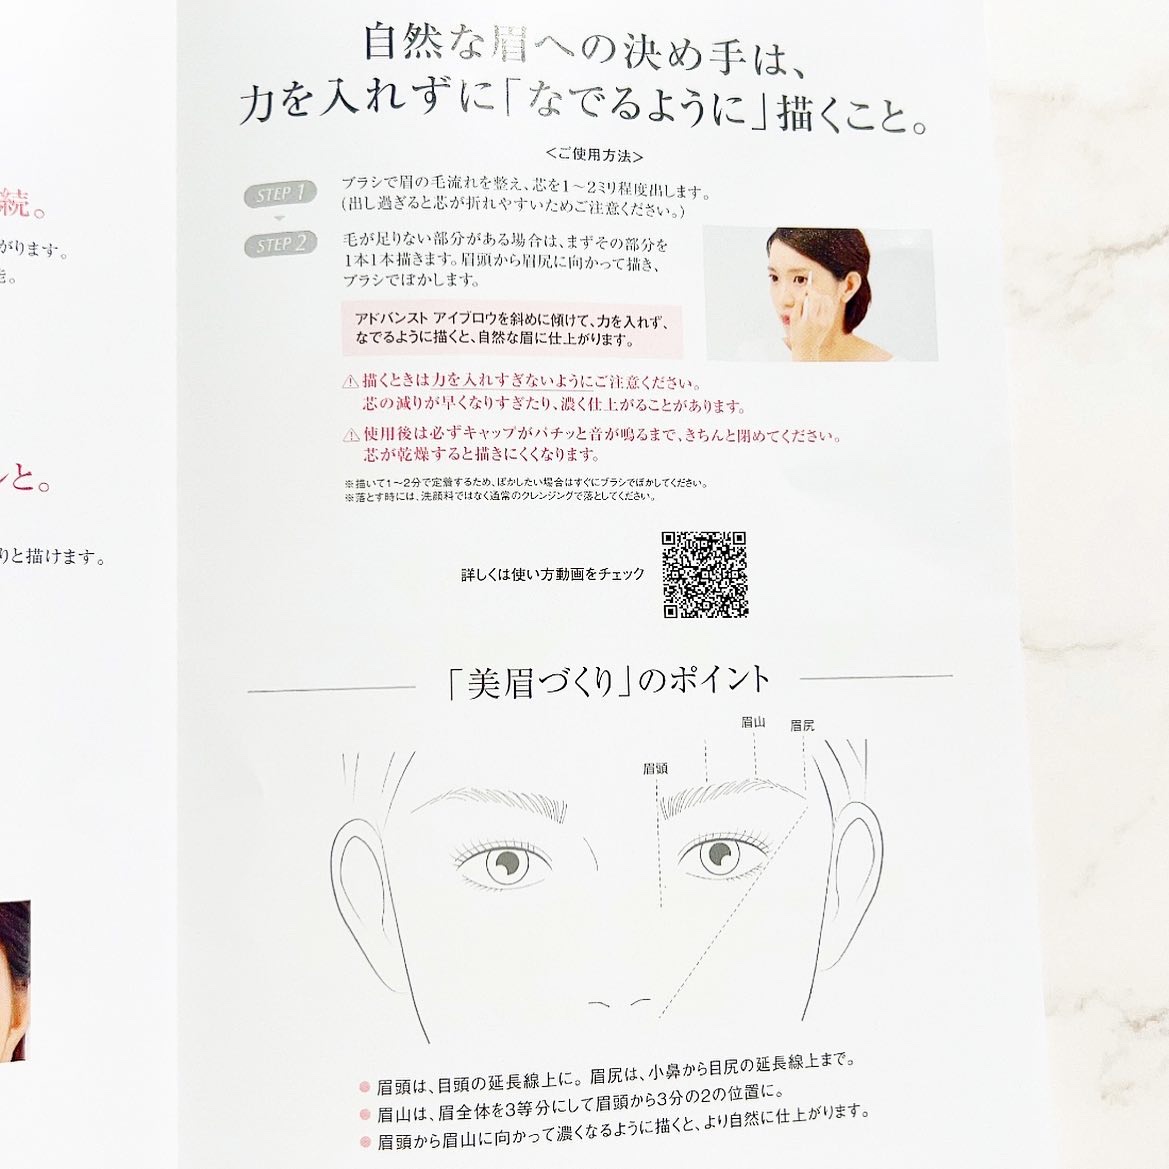 自然な眉への決め手は、
力を入れずに「なでるように」描くこと。
＜ご使用方法＞
STEP 1
ブラシで眉の毛流れを整え、芯を1～2ミリ程度出します。
（出し過ぎると芯が折れやすいためご注意ください。）
STEP 2
毛が足りない部分がある場合は、まずその部分を
1本1本描きます。眉頭から眉尻に向かって描き、
ブラシでぼかします。
アドバンスト アイブロウを斜めに傾けて、力を入れず、
なでるように描くと、自然な眉に仕上がります。
⚠描くときは力を入れすぎないようにご注意ください。
芯の減りが早くなりすぎたり、濃く仕上がることがあります。
⚠使用後は必ずキャップがパチッと音が鳴るまで、きちんと閉めてください。
芯が乾燥すると描きにくくなります。
※描いて1～2分で定着するため、ぼかしたい場合はすぐにブラシでぼかしてください。
※落とす時には、洗顔料ではなく通常のクレンジングで落としてください。
詳しくは使い方動画をチェック
「美眉づくり」のポイント
眉山
眉尻
眉頭
●眉頭は、目頭の延長線上に。眉尻は、小鼻から目尻の延長線上まで。
●眉山は、眉全体を3等分にして眉頭から3分の2の位置に。
●眉頭から眉山に向かって濃くなるように描くと、より自然に仕上がります。
続。
がります。
と。
りと描けます。